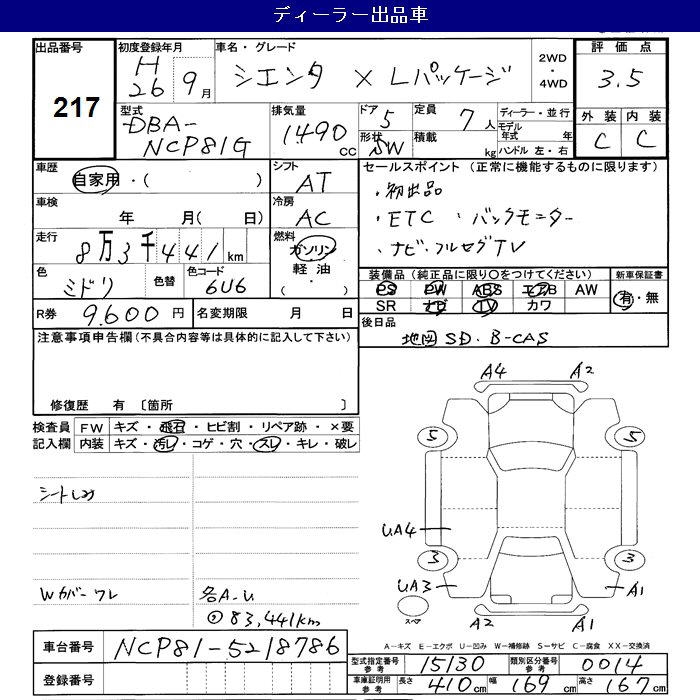 ディーラー出品車
出品番号
217
初度登録年月
H26 9月
車名・グレード
シエンタ X Lパッケージ
2WD
・
4WD
評価点
3.5
外装 内装
C C
型式
DBA-
NCP81G
排気量
1490 cc
ドア 5
形状 SW
定員 7人
積載 kg
ディーラー・並行
モデル年式 年
ハンドル 左・右
車歴
自家用・( )
シフト
AT
セールスポイント (正常に機能するものに限ります)
・初出品
・ETC ・バックモニター
・ナビ・フルセグTV
車検
年 月( 日)
冷房
AC
走行
8万3千441km
燃料
ガソリン
軽油
( ・ )
色
ミドリ
色替
色コード
6U6
装備品 (純正品に限り○をつけてください)
PS PW ABS エアB AW
SR ナビ TV カワ
新車保証書
有・無
R券 9.600円
名変期限 月 日
後日品
地図SD・B-CAS
注意事項申告欄 (不具合内容等は具体的に記入して下さい)
修復歴 有 〔箇所 〕
検査員
記入欄
FW キズ・飛石・ヒビ割・リペア跡・×要
内装 キズ・汚レ・コゲ・穴・スレ・キレ・破レ
シートシミ
Wカバーワレ
各A.U
83,441km
A4 A2
5 5
UA4
3 3
UA3 A1
スペア
A2 A1
A-キズ E-エクボ U-凹み W-補修跡 S-サビ C-腐食 XX-交換済
車台番号 NCP81-5218786
登録番号
型式指定番号
参考
15130
類別区分番号
参考
0014
車庫証明用
参考
長さ 410cm 幅 169cm 高さ 167cm